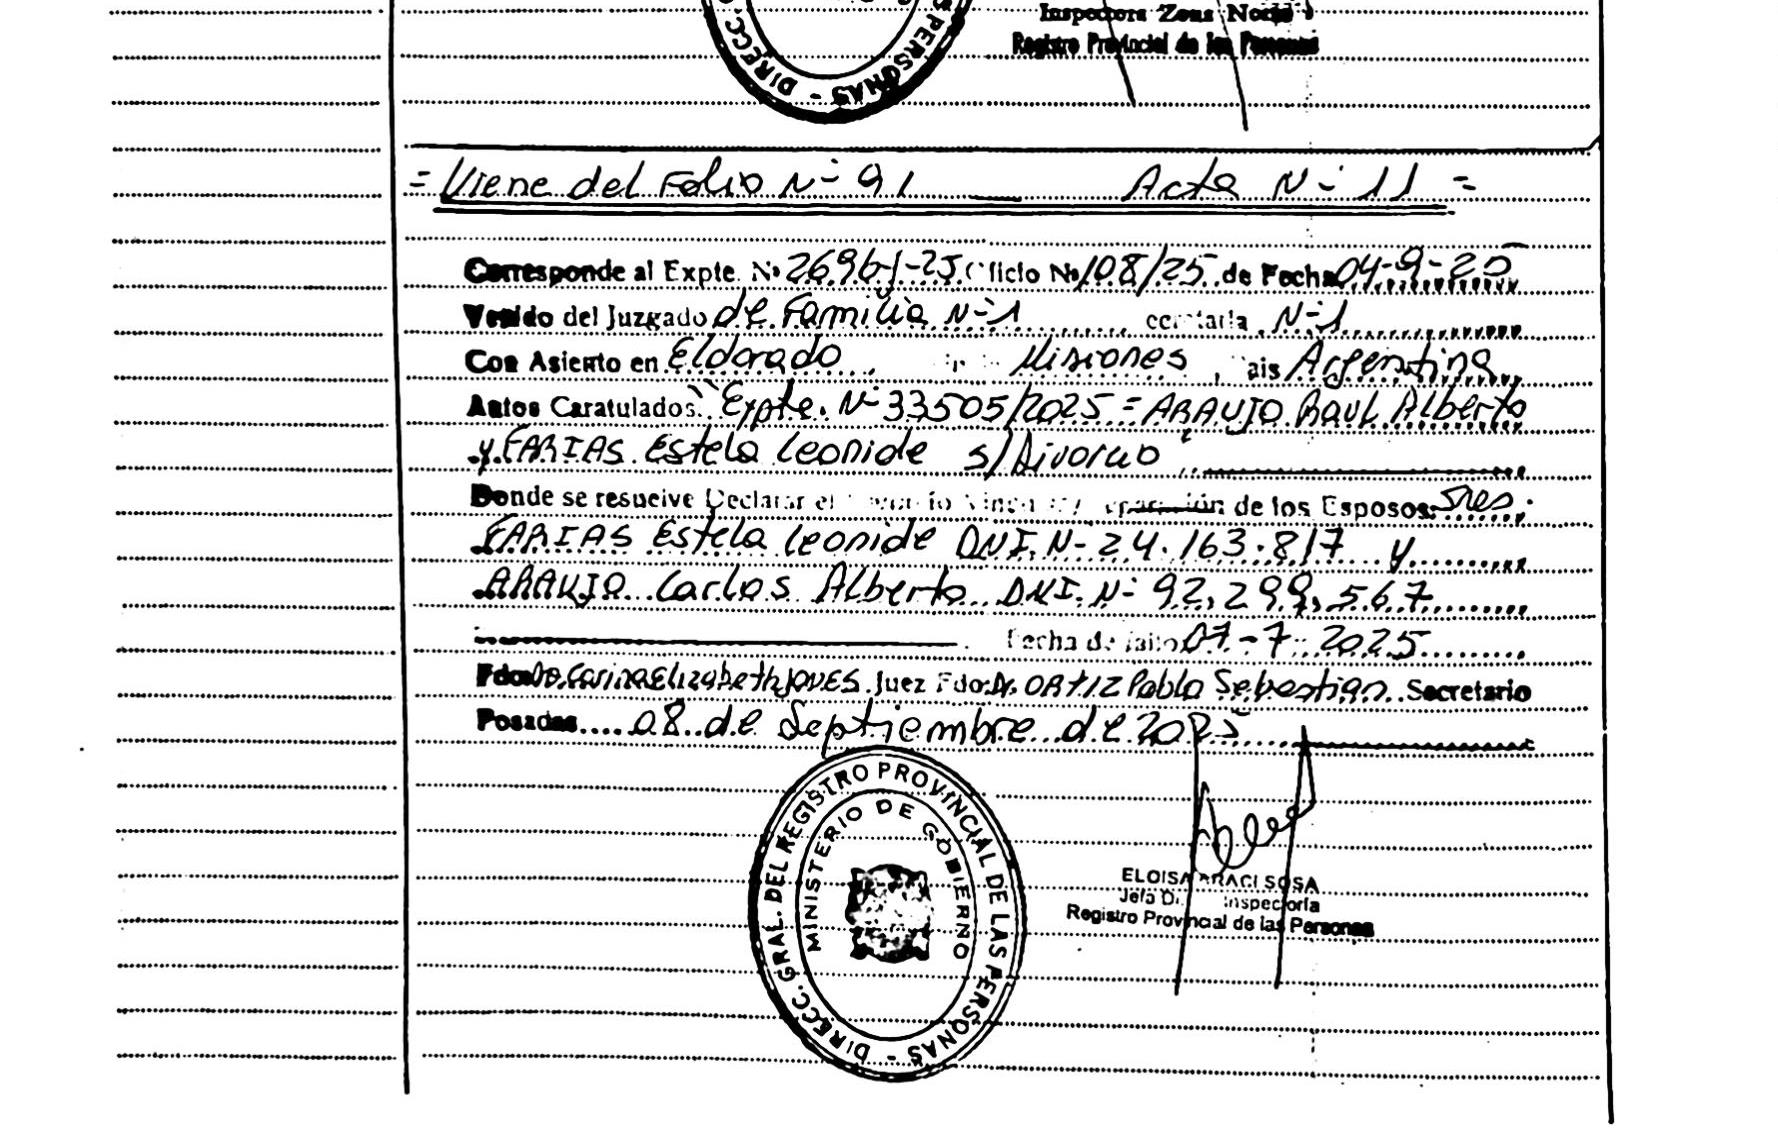 DIRECC
S PERSONAS -
Inspectora Zona Norte
Registro Provincial de las Personas
= Viene del Folio N- 91 Acta N- 11 =
Corresponde al Expte. Nº 2696-J-25 Oficio Nº 108/25 de Fecha 04-9-25
Venido del Juzgado de Familia N-1 cretaria N-1
Con Asiento en Eldorado Misiones, ais Argentina
Autos Caratulados "Expte. N- 33505/2025 = ARAUJO Raul Alberto
y FARIAS Estela Leonide s/Divorcio
Donde se resuelve Declarar el de los Esposos: Sres.
FARIAS Estela Leonide DNI. N- 24.163.817 y
ARAUJO Carlos Alberto DNI. N- 92,299,567
Fecha de fallo 07-7-2025
Fdo. Farina Elizabeth JONES Juez Fdo. Dr. ORTIZ Pablo Sebastian Secretario
Posadas 08 de Septiembre de 2025
DIRECC. GRAL. DEL REGISTRO PROVINCIAL DE LAS PERSONAS -
MINISTERIO DE GOBIERNO
ELOISA ARACI SOSA
Jefa D. Inspectoría
Registro Provincial de las Personas